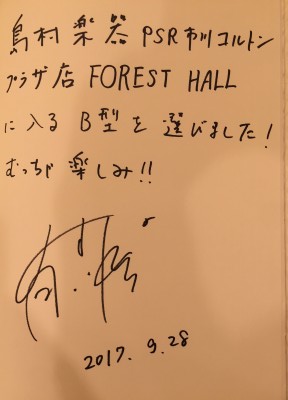 島村楽器 PSR市川コルトン
プラザ店 FOREST HALL
に入る B型を選びました!
むっちゃ楽しみ!!
2017. 9. 28